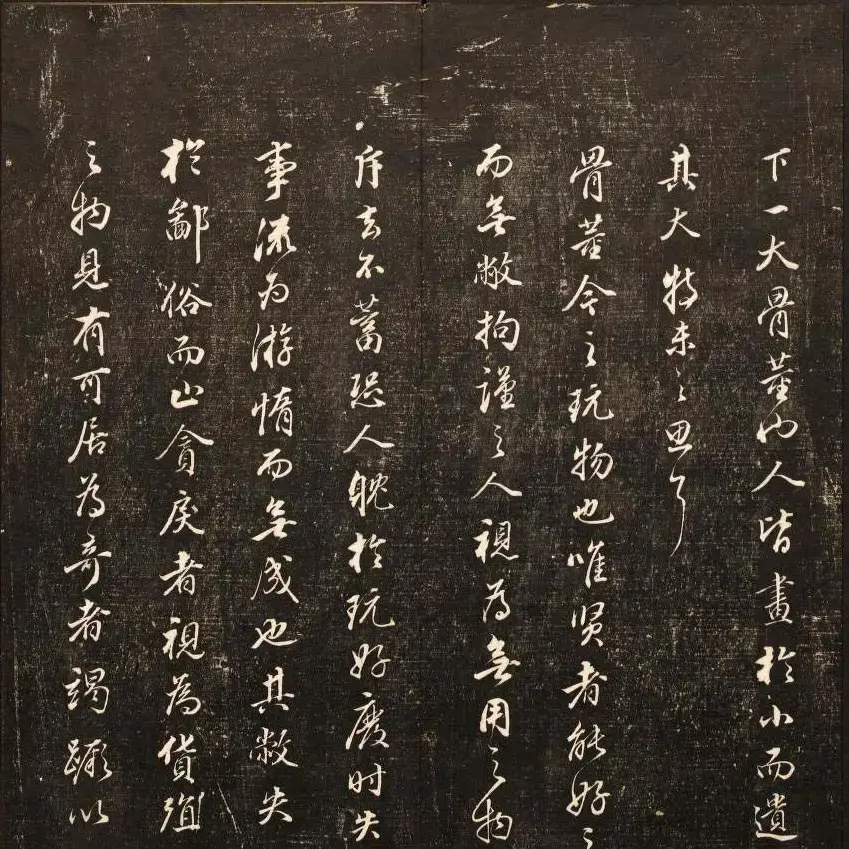 下一大骨董也人皆畫於小而遺
其大特未之思耳
骨董今之玩物也唯賢者能好之
而無敝拘謹之人視為無用之物
斥去不蓄恐人躭於玩好廢時失
事流為游惰而無成也其敝失
於鄙俗而止貪戾者視為貨殖
之物見有可居為奇者竭蹶以